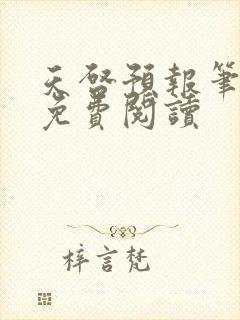 天啓預報筆
免費閱讀
梓言梵